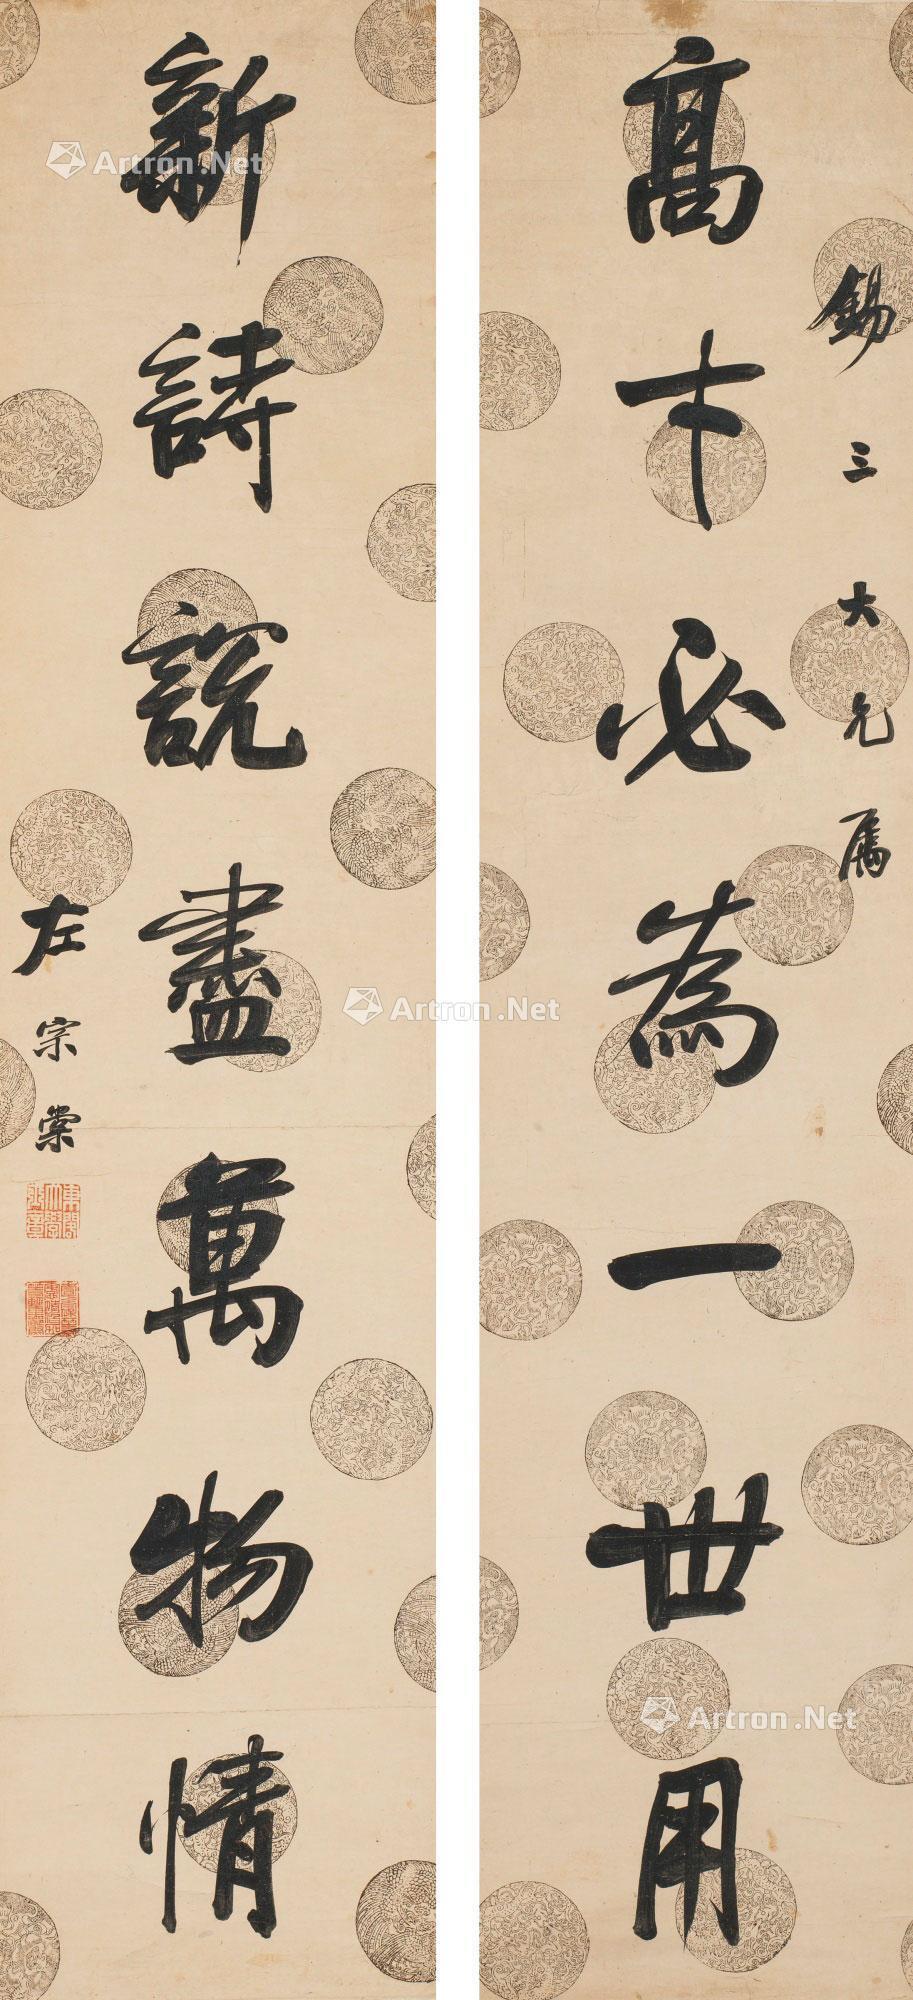 高才必為一世用
錫三大兄屬
新詩說盡萬物情
左宗棠
東閣大學士章
Artron.Net
Artron.Net
Artron.Net